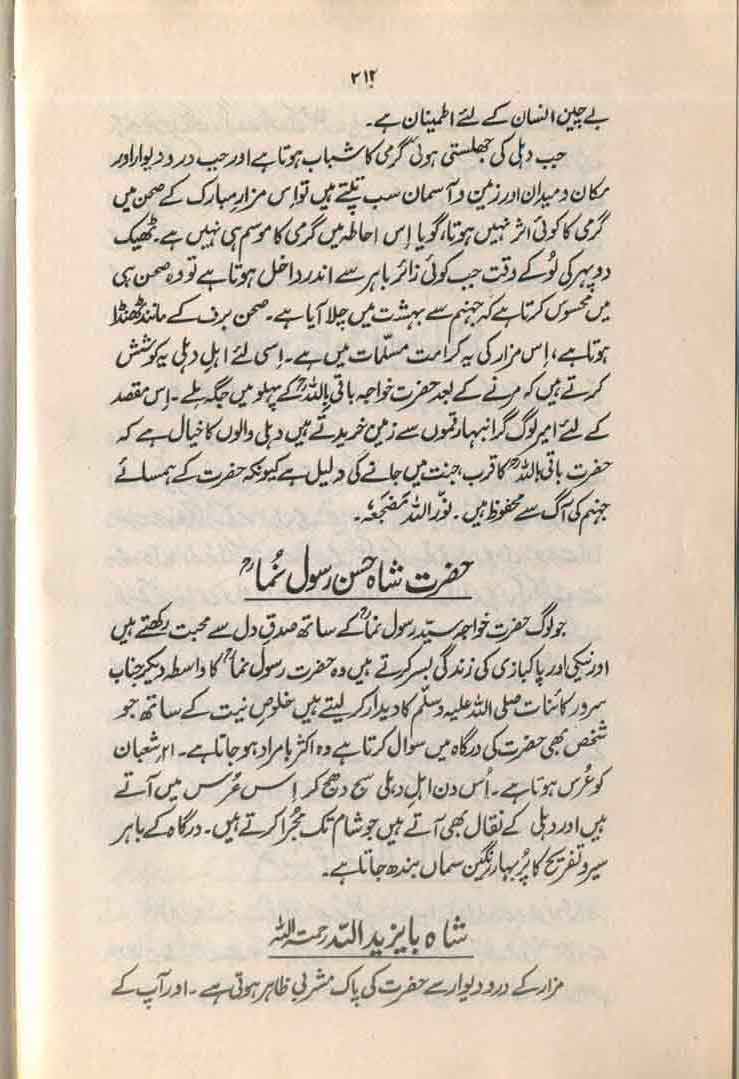 ۲۱۲
بے چین انسان کے لئے اطمینان ہے۔
جب دہلی کی جھلستی ہوئی گرمی کا شباب ہوتا ہے اور جب در و دیوار اور
مکان و میدان اور زمین و آسمان سب تپتے ہیں تو اِس مزارِ مبارک کے صحن میں
گرمی کا کوئی اثر نہیں ہوتا، گویا اِس احاطہ میں گرمی کا موسم ہی نہیں ہے۔ ٹھیک
دوپہر کی لُو کے وقت جب کوئی زائر باہر سے اندر داخل ہوتا ہے تو وہ صحن ہی
میں محسوس کرتا ہے کہ جہنم سے بہشت میں چلا آیا ہے۔ صحن برف کے مانند ٹھنڈا
ہوتا ہے، اِس مزار کی یہ کرامت مسلّمات میں ہے۔ اِسی لئے اہلِ دہلی یہ کوشش
کرتے ہیں کہ مرنے کے بعد حضرت خواجہ باقی باللہؒ کے پہلو میں جگہ ملے۔ اِس مقصد
کے لئے امیر لوگ گرانبہا رقموں سے زمین خریدتے ہیں دہلی والوں کا خیال ہے کہ
حضرت باقی باللہؒ کا قرب، جنت میں جانے کی دلیل ہے کیونکہ حضرت کے ہمسائے
جہنم کی آگ سے محفوظ ہیں۔ نوّر اللہ مَضجَعَہٗ۔
حضرت شاہ حسن رسول نُماؒ
جو لوگ حضرت خواجہ سیّد رسول نماؒ کے ساتھ صدقِ دل سے محبت رکھتے ہیں
اور نیکی اور پاکبازی کی زندگی بسر کرتے ہیں وہ حضرت رسول نماؒ کا واسطہ دیکر جناب
سرورِ کائنات صلی اللہ علیہ وسلّم کا دیدار کر لیتے ہیں خلوصِ نیت کے ساتھ جو
شخص بھی حضرت کی درگاہ میں سوال کرتا ہے وہ اکثر بامراد ہو جاتا ہے۔ ۲۱ شعبان
کو عُرس ہوتا ہے۔ اُس دن اہلِ دہلی سج دھج کر اِس عُرس میں آتے
ہیں اور دہلی کے نقال بھی آتے ہیں جو شام تک مجُرا کرتے ہیں۔ درگاہ کے باہر
سیر و تفریح کا پُر بہار رنگین سماں بندھ جاتا ہے۔
شاہ بایزید اللہ رحمتہ اللہ
مزار کے در و دیوار سے حضرت کی پاک مشربی ظاہر ہوتی ہے۔ اور آپ کے